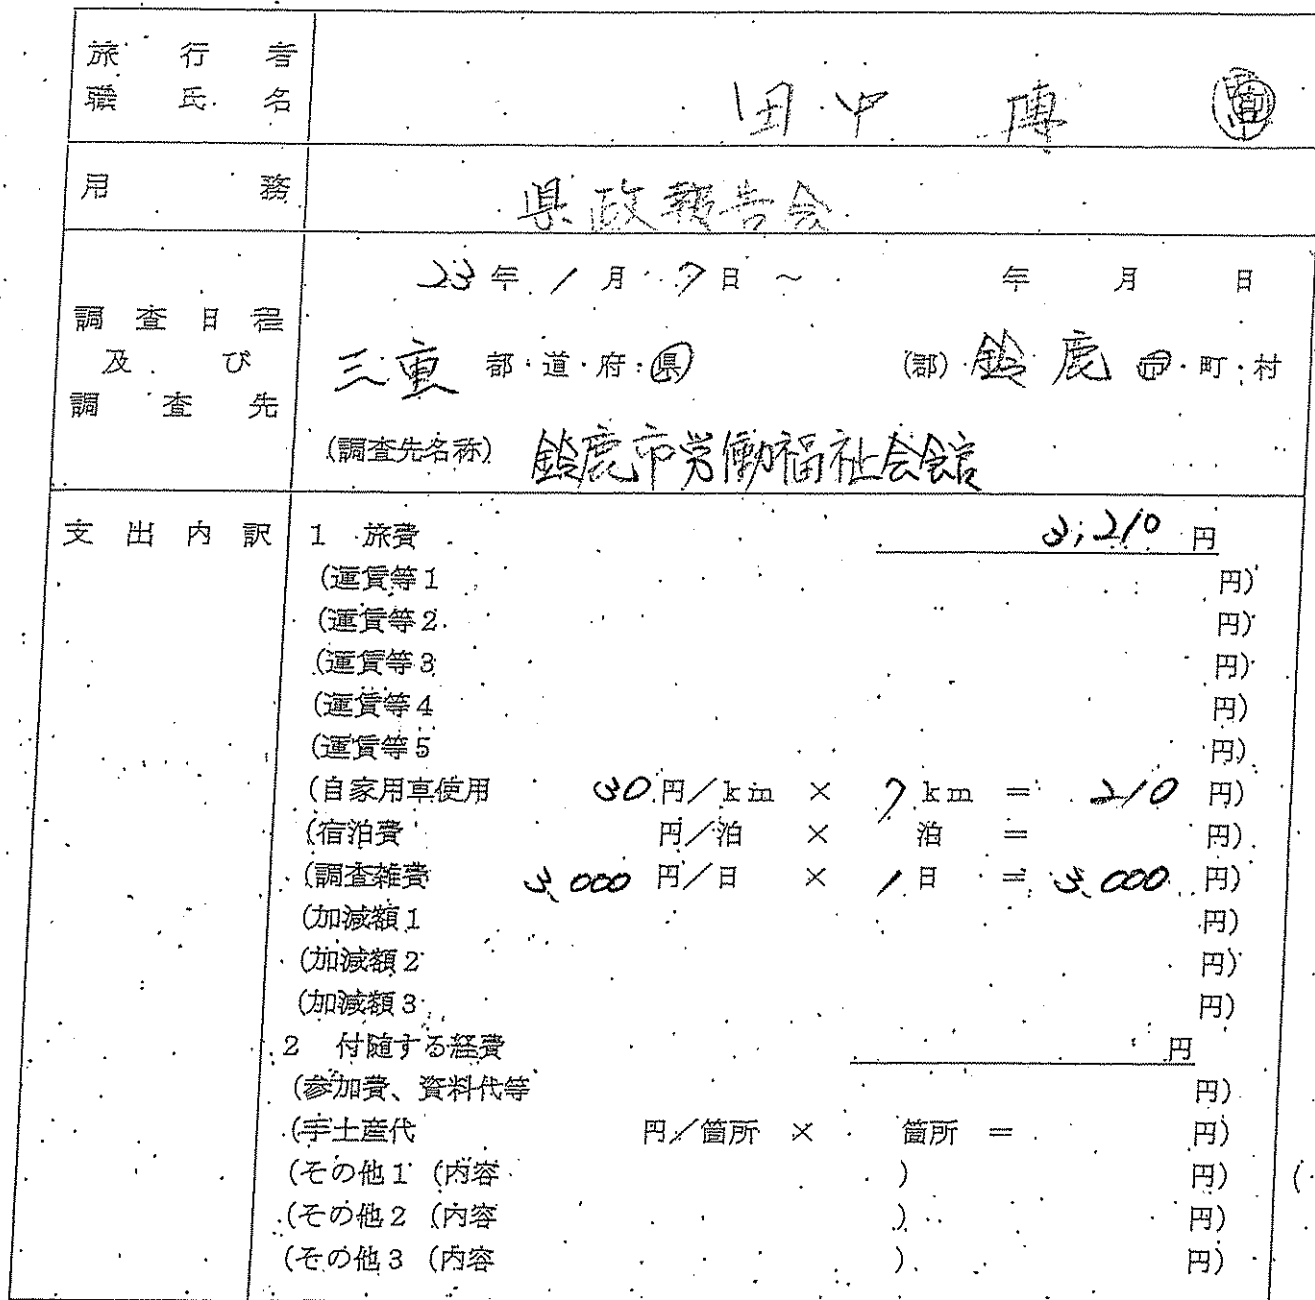 旅行者
職氏名 田中 博
用務 県政報告会
23年1月7日～ 年 月 日
調査日程
及び
調査先
三重 都・道・府・県 (郡)・鈴鹿 市・町・村
(調査先名称) 鈴鹿市労働福祉会館
支出内訳 1 旅費 3,210円
(運賃等1 円)
(運賃等2 円)
(運賃等3 円)
(運賃等4 円)
(運賃等5 円)
(自家用車使用 30円/km × 7km = 210円)
(宿泊費 円/泊 × 泊 = 円)
(調査雑費 3,000円/日 × 1日 = 3,000円)
(加減額1 円)
(加減額2 円)
(加減額3 円)
2 付随する経費 円
(参加費、資料代等 円)
(手土産代 円/箇所 × 箇所 = 円)
(その他1 (内容 ) 円)
(その他2 (内容 ) 円)
(その他3 (内容 ) 円)